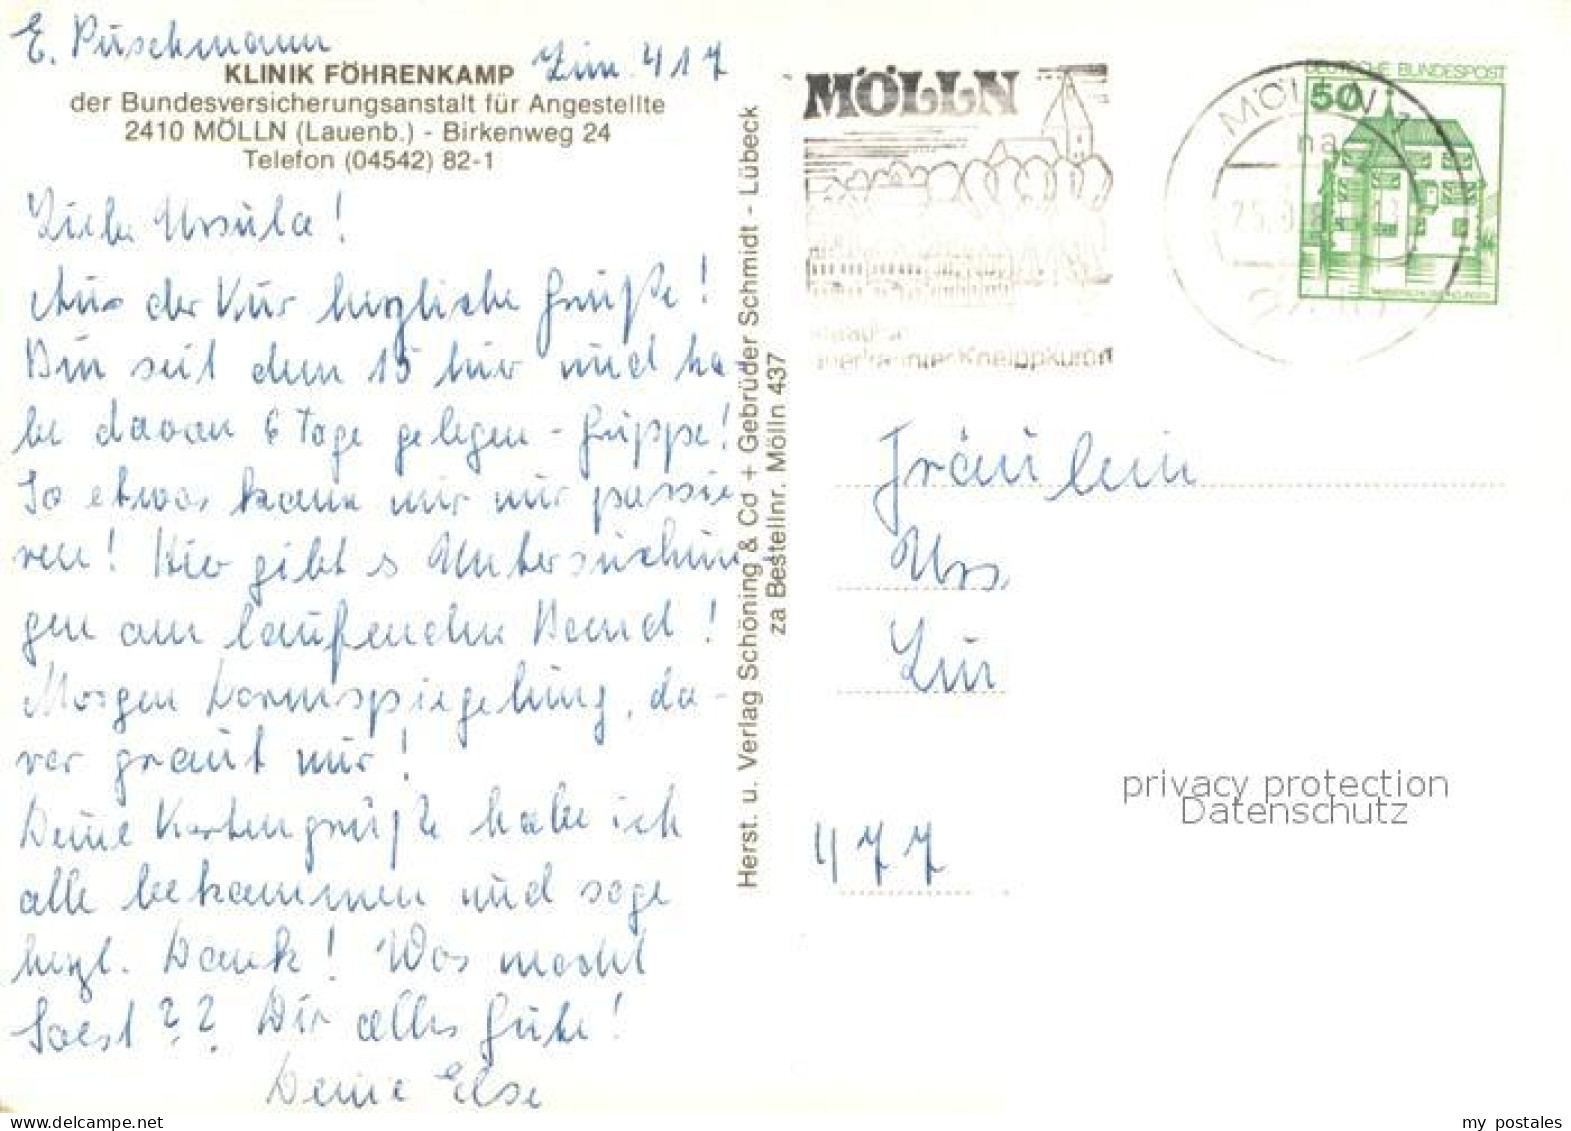 E. Püschmann
Zim. 417
KLINIK FÖHRENKAMP
der Bundesversicherungsanstalt für Angestellte
2410 MÖLLN (Lauenb.) - Birkenweg 24
Telefon (04542) 82-1
Liebe Ursula!
Aus der Kur herzliche Grüße!
Bin seit dem 15 hier und ha-
be davon 6 Tage gelegen - Grippe!
So etwas kann nur mir passie-
ren! Hier gibt s Untersuchun-
gen am laufenden Band!
Morgen Darmspiegelung, da-
vor graut mir!
Deine Kartengrüße habe ich
alle bekommen und sage
herzl. Dank! Was macht
Soest?? Dir alles Gute!
Deine Else
Herst. u. Verlag Schöning & Co + Gebrüder Schmidt - Lübeck
za Bestellnr. Mölln 437
MÖLLN
Kneippkurort
MÖLLN 1
na
DEUTSCHE BUNDESPOST
50
Fräulein
Urs
477
privacy protection
Datenschutz
my_postales